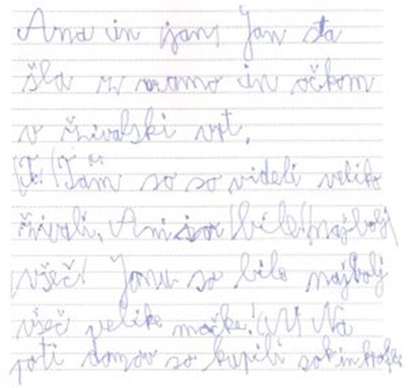 Ana in (jan) Jan sta
šla z mamo in očkom
v živalski vrt.
(Te) (Tam so so videli veliko
živali. Ani so (bile) (najbolj)
(všeč) Janu so bile najbolj
všeč velike mačke. Na
poti domov so kupili sok in